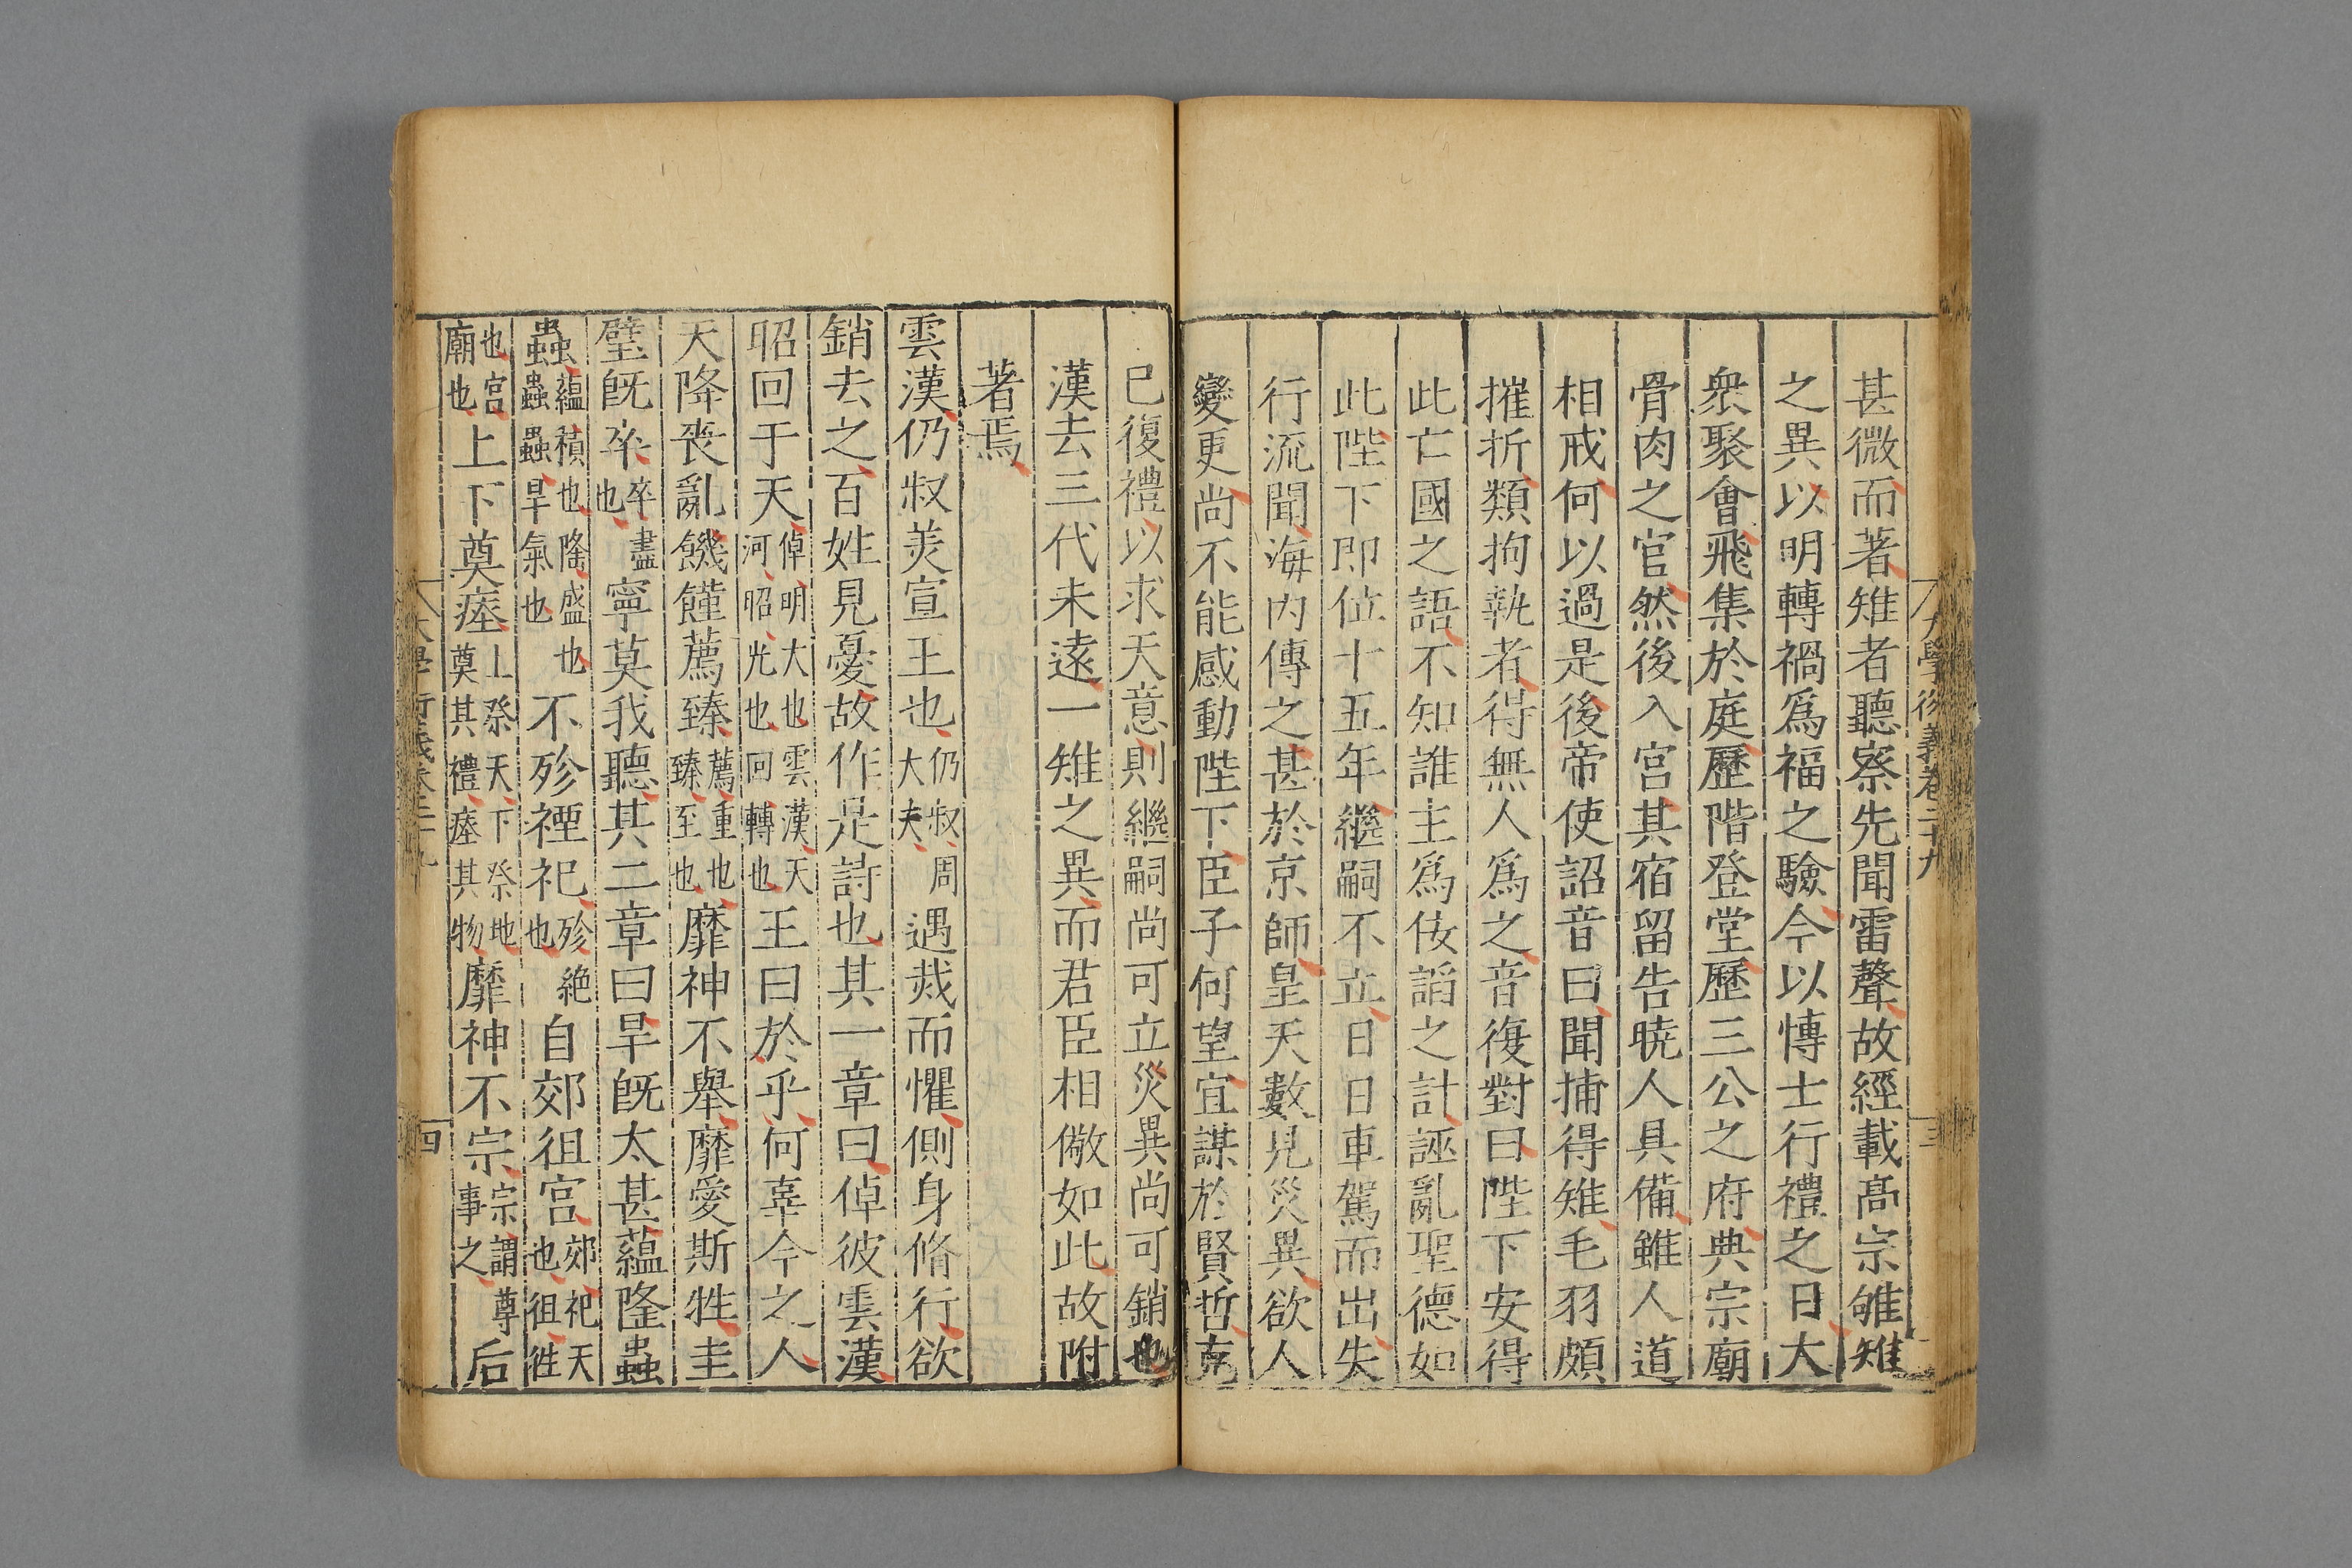 大學衍義卷二十九
三
甚微而著雉者聽察先聞雷聲故經載高宗雊雉
之異以明轉禍爲福之驗今以愽士行禮之日大
衆聚會飛集於庭歷階登堂歷三公之府典宗廟
骨肉之官然後入宫其宿留告曉人具備雖人道
相戒何以過是後帝使詔音曰聞捕得雉毛羽頗
摧折類拘執者得無人爲之音復對曰陛下安得
此亡國之語不知誰主爲佞謟之計誣亂聖德如
此陛下即位十五年繼嗣不立日日車駕而出失
行流聞海内傳之甚於京師皇天數見災異欲人
變更尚不能感動陛下臣子何望宜謀於賢哲克
已復禮以求天意則繼嗣尚可立災異尚可銷也
漢去三代未遠一雉之異而君臣相儆如此故附
著焉
雲漢仍叔美宣王也仍叔周大夫遇烖而懼側身脩行欲
銷去之百姓見憂故作是詩也其一章曰倬彼雲漢
昭回于天倬明大也雲漢天河昭光也回轉也王曰於乎何辜今之人
天降喪亂饑饉薦臻薦重也臻至也靡神不舉靡愛斯牲圭
璧旣卒卒盡也寧莫我聽其二章曰旱旣太甚藴隆蟲
蟲藴積也隆盛也蟲蟲旱氣也不殄禋祀殄絶也自郊徂宫郊祀天也徂徃
也宫廟也上下奠瘞上祭天下祭地奠其禮瘞其物靡神不宗宗謂尊事之后
大學衍義卷二十九
四